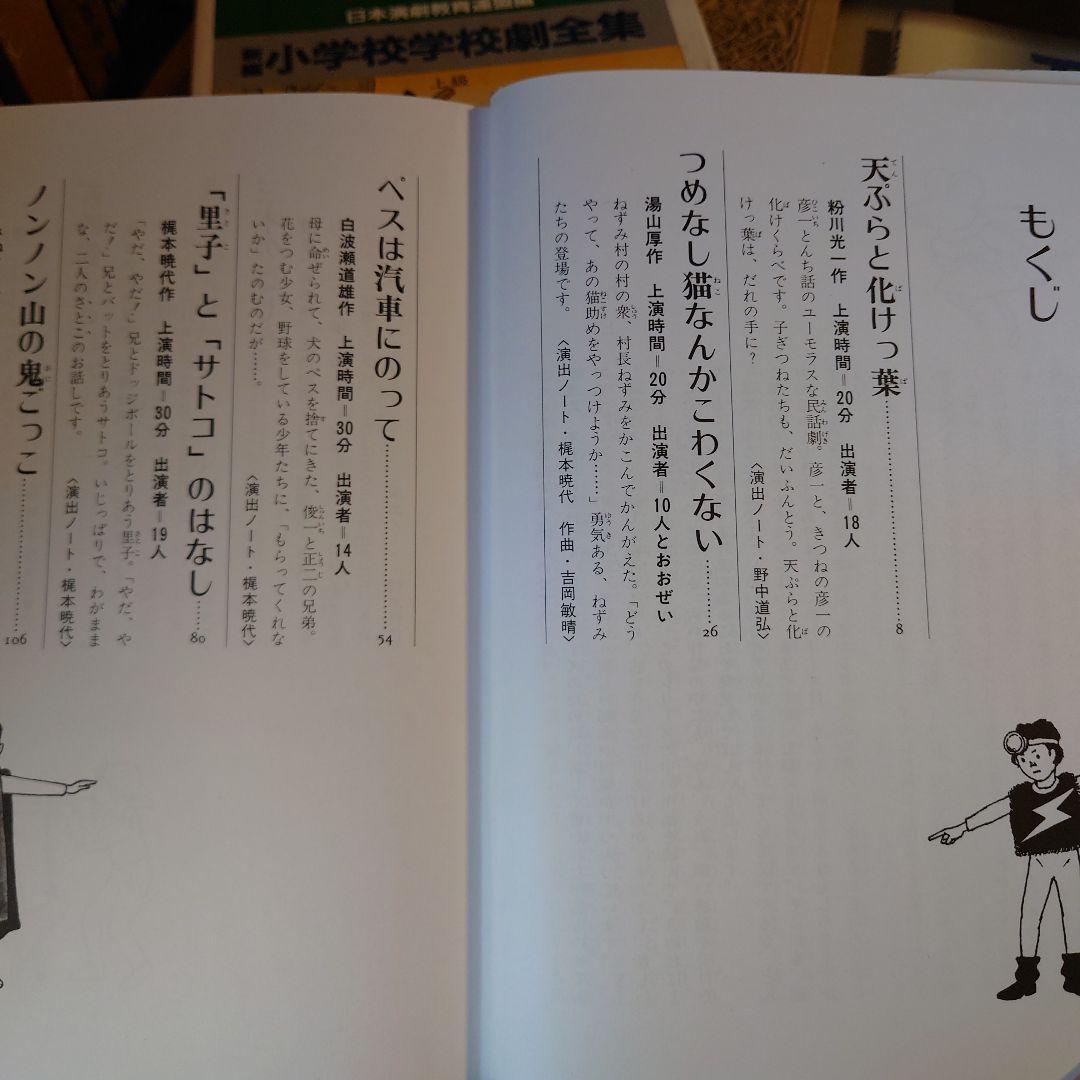 日本演劇教育連盟編
新編 小学校学校劇全集
上級
もくじ
天ぷらと化けっ葉……………8
粉川光一作 上演時間=20分 出演者=18人
彦一とんち話のユーモラスな民話劇。彦一と、きつねの彦一の
化けくらべです。子ぎつねたちも、だいふんとう。天ぷらと化
けっ葉は、だれの手に?
〈演出ノート・野中道弘〉
つめなし猫なんかこわくない………26
湯山厚作 上演時間=20分 出演者=10人とおおぜい
ねずみ村の村の衆、村長ねずみをかこんでかんがえた。「どう
やって、あの猫助めをやっつけようか……」勇気ある、ねずみ
たちの登場です。
〈演出ノート・梶本暁代 作曲・吉岡敏晴〉
ペスは汽車にのって……………54
白波瀬道雄作 上演時間=30分 出演者=14人
母に命ぜられて、犬のペスを捨てにきた、俊一と正二の兄弟。
花をつむ少女、野球をしている少年たちに、「もらってくれな
いか」たのむのだが……。
〈演出ノート・梶本暁代〉
「里子」と「サトコ」のはなし……80
梶本暁代作 上演時間=30分 出演者=19人
「やだ、やだ!」兄とドッジボールをとりあう里子。「やだ、や
だ!」兄とバットをとりあうサトコ。いじっぱりで、わがまま
な、二人のさとこのお話しです。
〈演出ノート・梶本暁代〉
ノンノン山の鬼ごっこ……………106